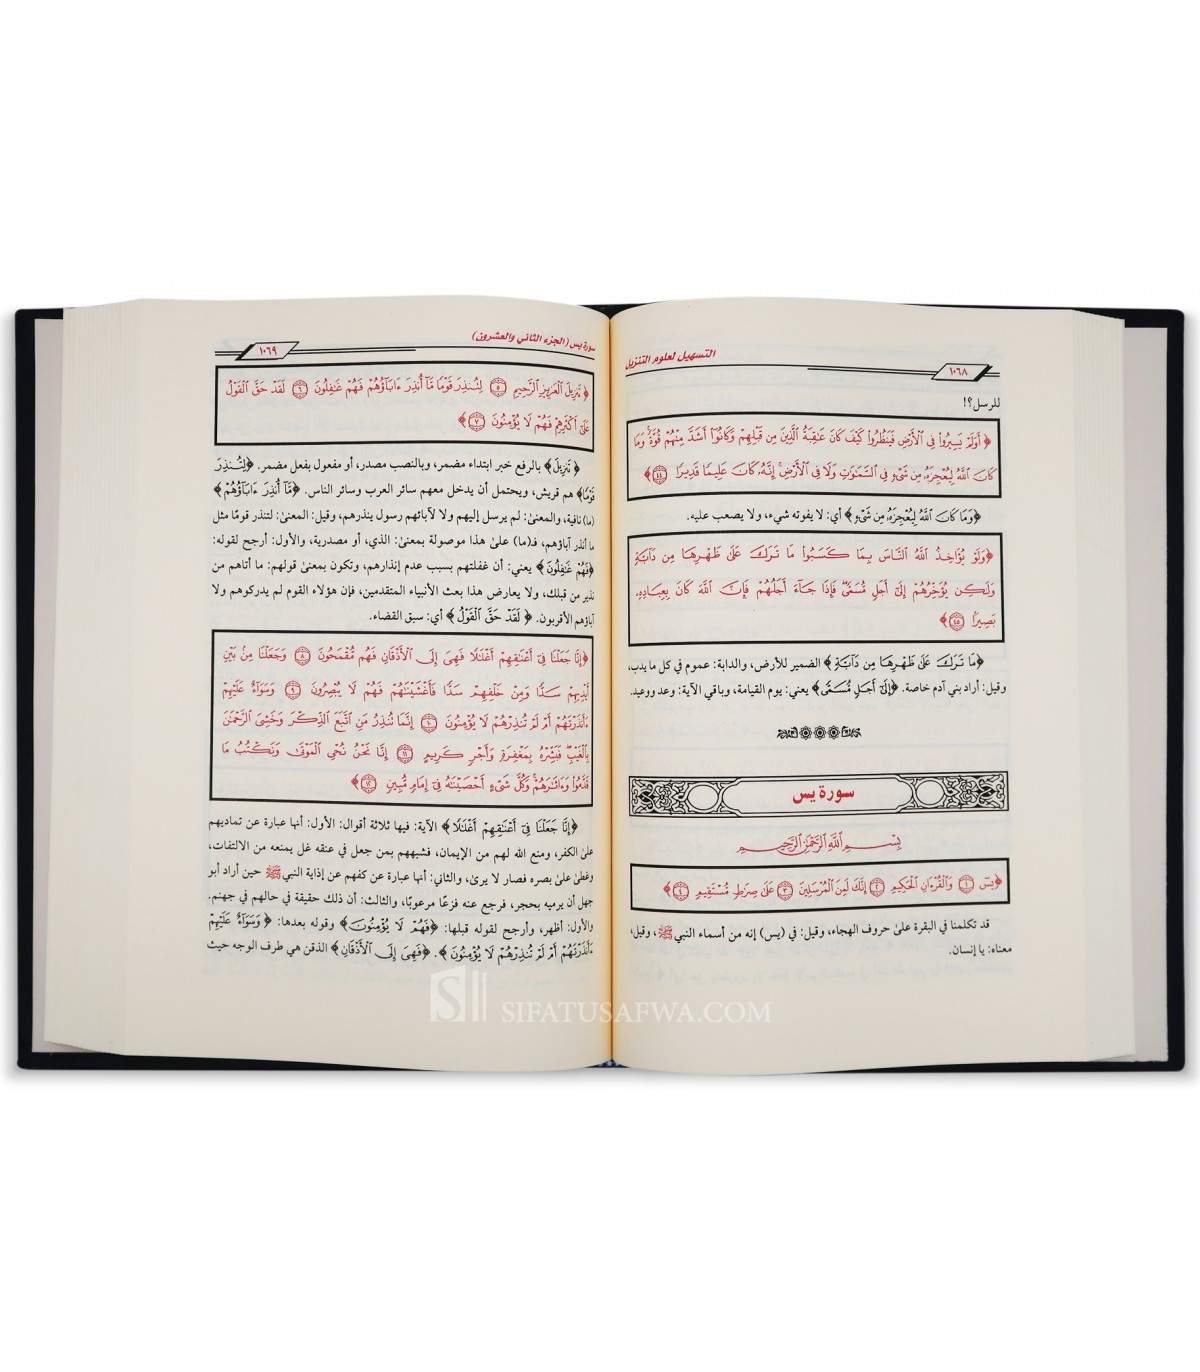 ١٠٦٨
التسهيل لعلوم التنزيل
للرسل؟!
﴿أَوَلَمْ يَسِيرُوا۟ فِى ٱلْأَرْضِ فَيَنظُرُوا۟ كَيْفَ كَانَ عَـٰقِبَةُ ٱلَّذِينَ مِن قَبْلِهِمْ وَكَانُوٓا۟ أَشَدَّ مِنْهُمْ قُوَّةً ۚ وَمَا
كَانَ ٱللَّهُ لِيُعْجِزَهُۥ مِن شَىْءٍ فِى ٱلسَّمَـٰوَٰتِ وَلَا فِى ٱلْأَرْضِ ۚ إِنَّهُۥ كَانَ عَلِيمًا قَدِيرًا ٤٤﴾
﴿وَمَا كَانَ ٱللَّهُ لِيُعْجِزَهُۥ مِن شَىْءٍ﴾ أي: لا يفوته شيء، ولا يصعب عليه.
﴿وَلَوْ يُؤَاخِذُ ٱللَّهُ ٱلنَّاسَ بِمَا كَسَبُوا۟ مَا تَرَكَ عَلَىٰ ظَهْرِهَا مِن دَآبَّةٍ
وَلَـٰكِن يُؤَخِّرُهُمْ إِلَىٰٓ أَجَلٍ مُّسَمًّى ۖ فَإِذَا جَآءَ أَجَلُهُمْ فَإِنَّ ٱللَّهَ كَانَ بِعِبَادِهِۦ
بَصِيرًۢا ٤٥﴾
﴿مَا تَرَكَ عَلَىٰ ظَهْرِهَا مِن دَآبَّةٍ﴾ الضمير للأرض، والدابة: عموم في كل ما يدب،
وقيل: أراد بني آدم خاصة. ﴿إِلَىٰٓ أَجَلٍ مُّسَمًّى﴾ يعني: يوم القيامة، وباقي الآية: وعد ووعيد.
سورة يس
بِسْمِ ٱللَّهِ ٱلرَّحْمَـٰنِ ٱلرَّحِيمِ
﴿يسٓ ١ وَٱلْقُرْءَانِ ٱلْحَكِيمِ ٢ إِنَّكَ لَمِنَ ٱلْمُرْسَلِينَ ٣ عَلَىٰ صِرَٰطٍ مُّسْتَقِيمٍ ٤﴾
قد تكلمنا في البقرة علىٰ حروف الهجاء، وقيل: في (يس) إنه من أسماء النبي ﷺ، وقيل،
معناه: يا إنسان.
سورة يس (الجزء الثاني والعشرون)
١٠٦٩
﴿تَنزِيلَ ٱلْعَزِيزِ ٱلرَّحِيمِ ٥ لِتُنذِرَ قَوْمًا مَّآ أُنذِرَ ءَابَآؤُهُمْ فَهُمْ غَـٰفِلُونَ ٦ لَقَدْ حَقَّ ٱلْقَوْلُ
عَلَىٰٓ أَكْثَرِهِمْ فَهُمْ لَا يُؤْمِنُونَ ٧﴾
﴿تَنزِيلَ﴾ بالرفع خبر ابتداء مضمر، وبالنصب مصدر، أو مفعول بفعل مضمر. ﴿لِتُنذِرَ
قَوْمًا﴾ هم قريش، ويحتمل أن يدخل معهم سائر العرب وسائر الناس. ﴿مَّآ أُنذِرَ ءَابَآؤُهُمْ﴾
(ما) نافية، والمعنىٰ: لم يرسل إليهم ولا لآبائهم رسول ينذرهم، وقيل: المعنىٰ: لتنذر قومًا مثل
ما أنذر آباؤهم، فـ(ما) علىٰ هذا موصولة بمعنىٰ: الذي، أو مصدرية، والأول: أرجح لقوله:
﴿فَهُمْ غَـٰفِلُونَ﴾ يعني: أن غفلتهم بسبب عدم إنذارهم، وتكون بمعنىٰ قولهم: ما أتاهم من
نذير من قبلك، ولا يعارض هذا بعث الأنبياء المتقدمين، فإن هؤلاء القوم لم يدركوهم ولا
آباؤهم الأقربون. ﴿لَقَدْ حَقَّ ٱلْقَوْلُ﴾ أي: سبق القضاء.
﴿إِنَّا جَعَلْنَا فِىٓ أَعْنَـٰقِهِمْ أَغْلَـٰلًا فَهِىَ إِلَى ٱلْأَذْقَانِ فَهُم مُّقْمَحُونَ ٨ وَجَعَلْنَا مِنۢ بَيْنِ
أَيْدِيهِمْ سَدًّا وَمِنْ خَلْفِهِمْ سَدًّا فَأَغْشَيْنَـٰهُمْ فَهُمْ لَا يُبْصِرُونَ ٩ وَسَوَآءٌ عَلَيْهِمْ
ءَأَنذَرْتَهُمْ أَمْ لَمْ تُنذِرْهُمْ لَا يُؤْمِنُونَ ١٠ إِنَّمَا تُنذِرُ مَنِ ٱتَّبَعَ ٱلذِّكْرَ وَخَشِىَ ٱلرَّحْمَـٰنَ
بِٱلْغَيْبِ ۖ فَبَشِّرْهُ بِمَغْفِرَةٍ وَأَجْرٍ كَرِيمٍ ١١ إِنَّا نَحْنُ نُحْىِ ٱلْمَوْتَىٰ وَنَكْتُبُ مَا
قَدَّمُوا۟ وَءَاثَـٰرَهُمْ ۚ وَكُلَّ شَىْءٍ أَحْصَيْنَـٰهُ فِىٓ إِمَامٍ مُّبِينٍ ١٢﴾
﴿إِنَّا جَعَلْنَا فِىٓ أَعْنَـٰقِهِمْ أَغْلَـٰلًا﴾ الآية: فيها ثلاثة أقوال: الأول: أنها عبارة عن تماديهم
علىٰ الكفر، ومنع الله لهم من الإيمان، فشبههم بمن جعل في عنقه غل يمنعه من الالتفات،
وغطىٰ علىٰ بصره فصار لا يرىٰ، والثاني: أنها عبارة عن كفهم عن إذاية النبي ﷺ حين أراد أبو
جهل أن يرميه بحجر، فرجع عنه فزعًا مرعوبًا، والثالث: أن ذلك حقيقة في حالهم في جهنم.
والأول: أظهر، وأرجح لقوله قبلها: ﴿فَهُمْ لَا يُؤْمِنُونَ﴾ وقوله بعدها: ﴿وَسَوَآءٌ عَلَيْهِمْ
ءَأَنذَرْتَهُمْ أَمْ لَمْ تُنذِرْهُمْ لَا يُؤْمِنُونَ﴾. ﴿فَهِىَ إِلَى ٱلْأَذْقَانِ﴾ الذقن هي طرف الوجه حيث
SIFATUSAFWA.COM